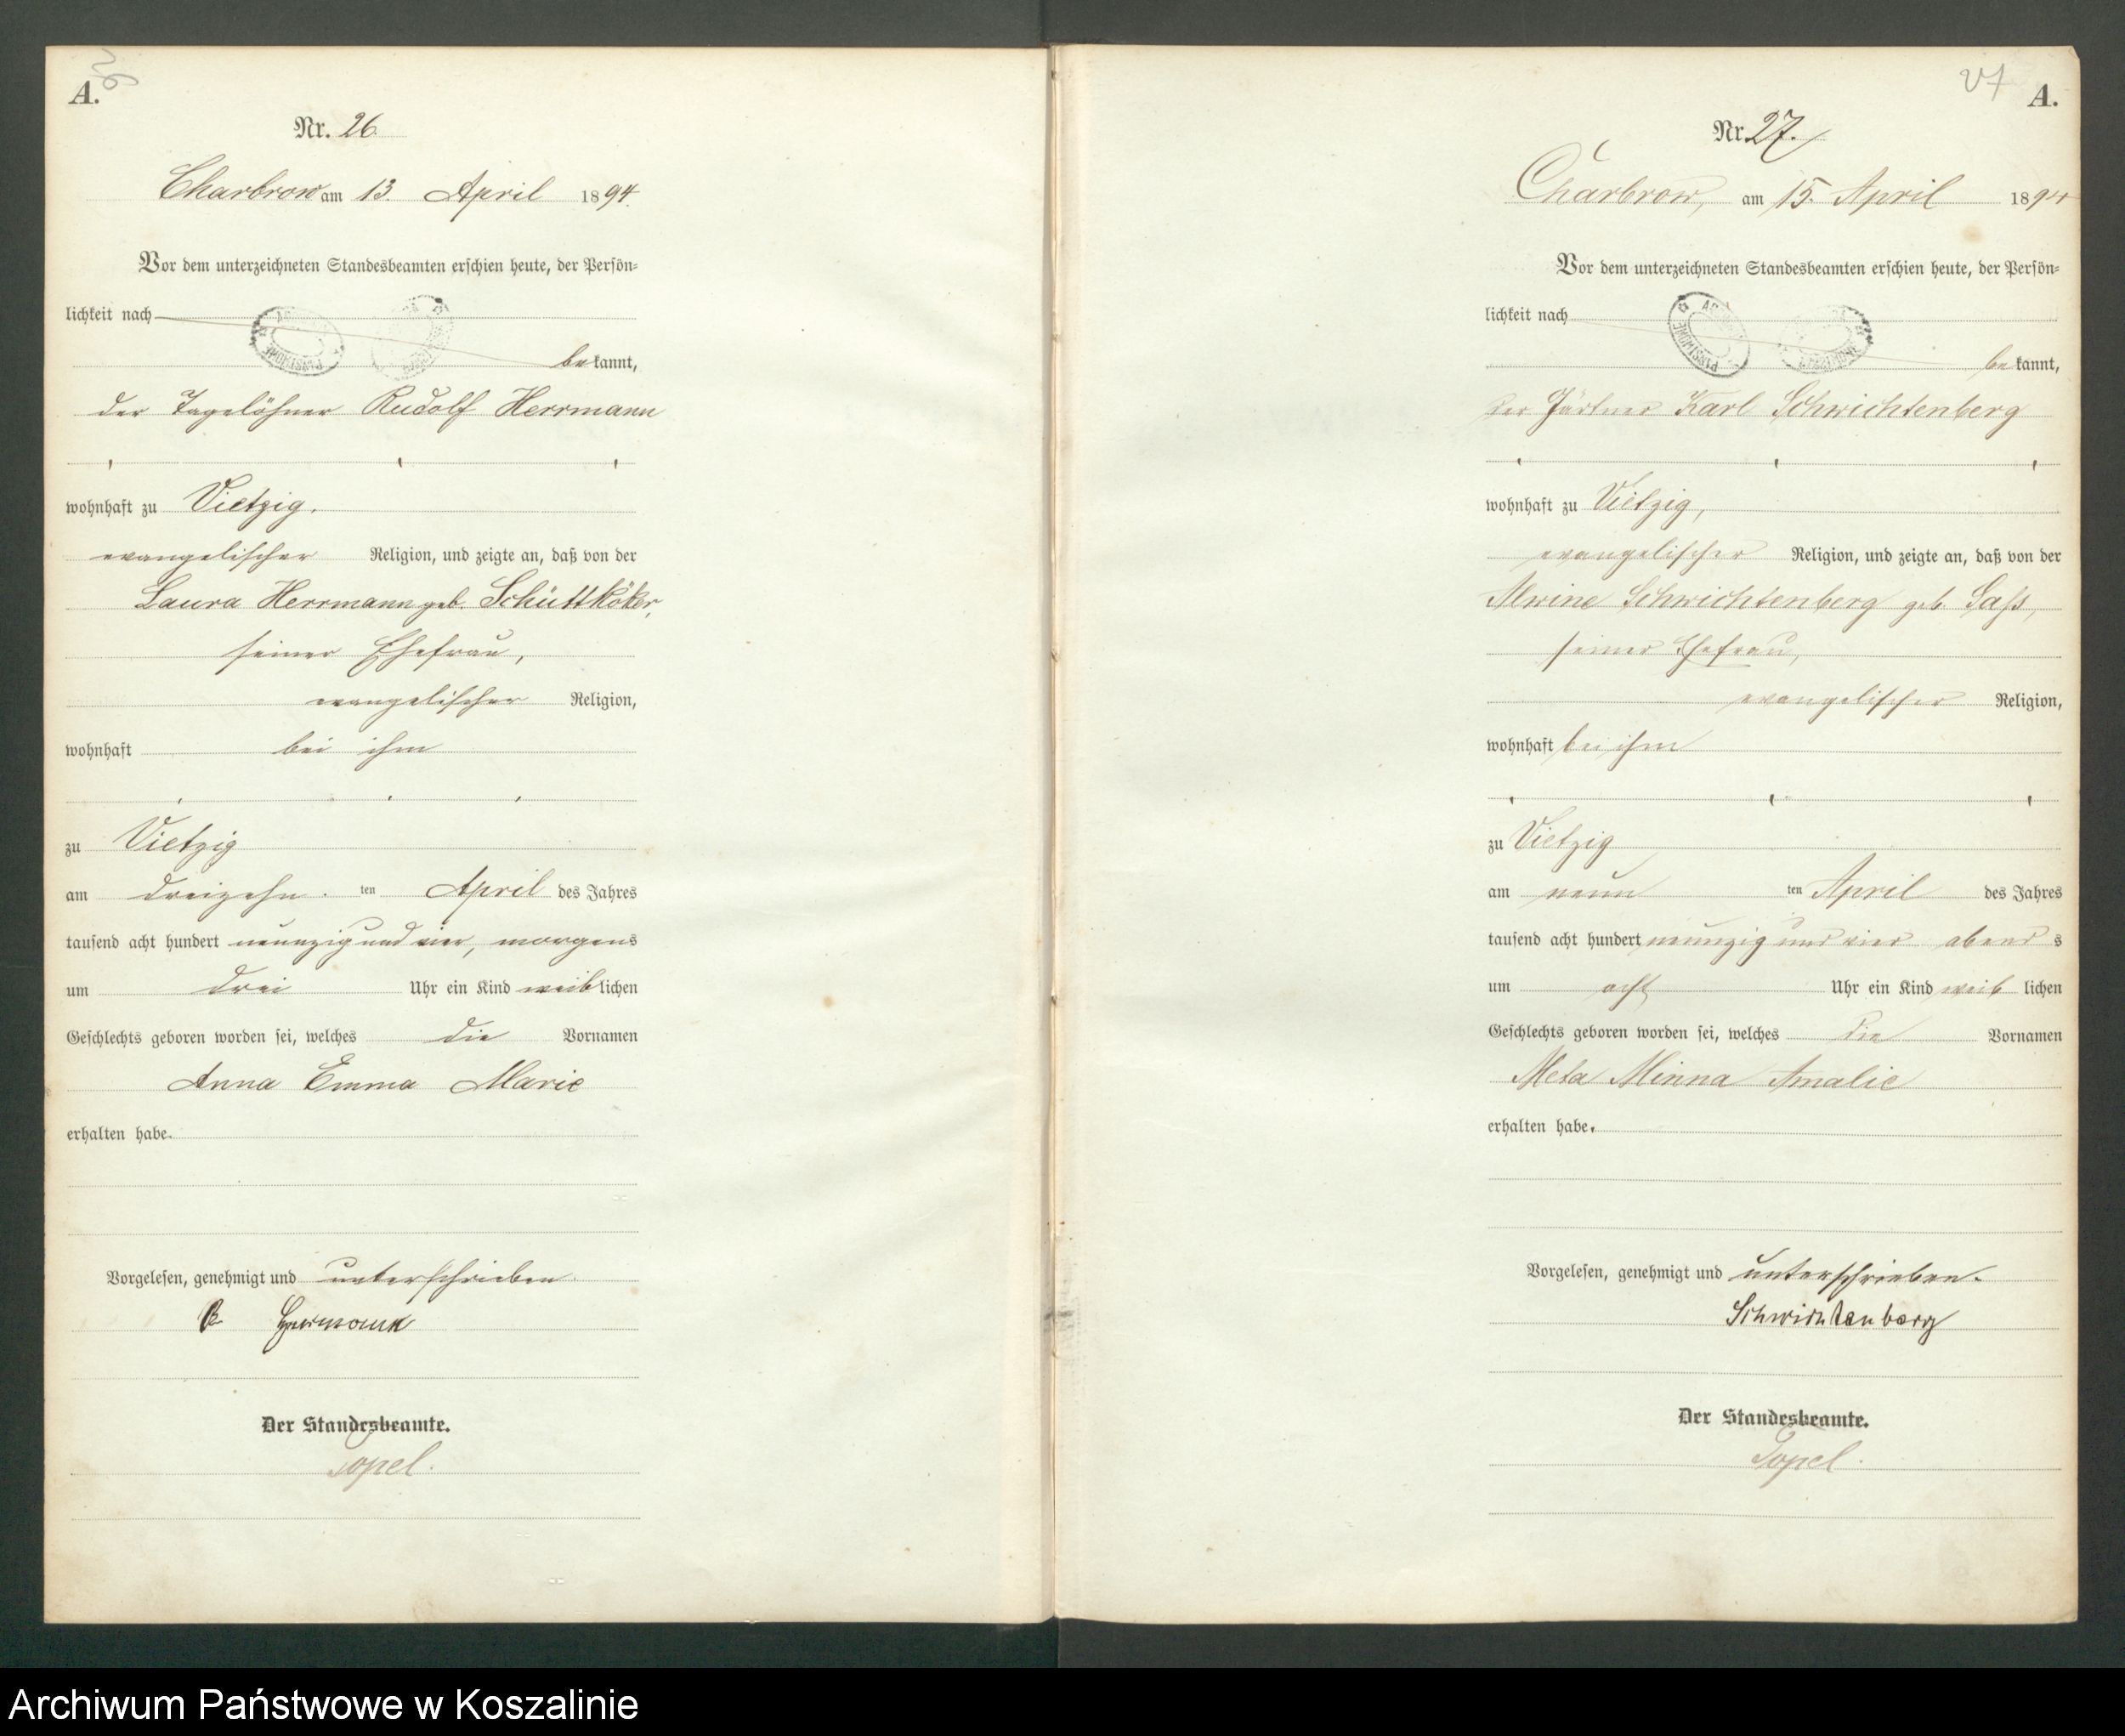 A.
26
Nr. 26.
Charbrow am 13. April 1894.
Vor dem unterzeichneten Standesbeamten erschien heute, der Persön-
lichkeit nach
bekannt,
der Tagelöhner Rudolf Herrmann
wohnhaft zu Vietzig,
evangelischer Religion, und zeigte an, daß von der
Laura Herrmann geb. Schüttköker,
seiner Ehefrau,
evangelischer Religion,
wohnhaft bei ihm
zu Vietzig
am dreizehn ten April des Jahres
tausend acht hundert neunzig und vier, morgens
um drei Uhr ein Kind weiblichen
Geschlechts geboren worden sei, welches die Vornamen
Anna Emma Marie
erhalten habe.
Vorgelesen, genehmigt und unterschrieben.
R Herrmann
Der Standesbeamte.
Topel.
27
A.
Nr. 27.
Charbrow, am 15. April 1894
Vor dem unterzeichneten Standesbeamten erschien heute, der Persön-
lichkeit nach
bekannt,
der Gärtner Karl Schwichtenberg
wohnhaft zu Vietzig,
evangelischer Religion, und zeigte an, daß von der
Alwine Schwichtenberg geb. Saß,
seiner Ehefrau,
evangelischer Religion,
wohnhaft bei ihm
zu Vietzig
am neun ten April des Jahres
tausend acht hundert neunzig und vier abends
um acht Uhr ein Kind weiblichen
Geschlechts geboren worden sei, welches die Vornamen
Meta Minna Amalie
erhalten habe.
Vorgelesen, genehmigt und unterschrieben.
Schwichtenberg
Der Standesbeamte.
Topel.
Archiwum Państwowe w Koszalinie